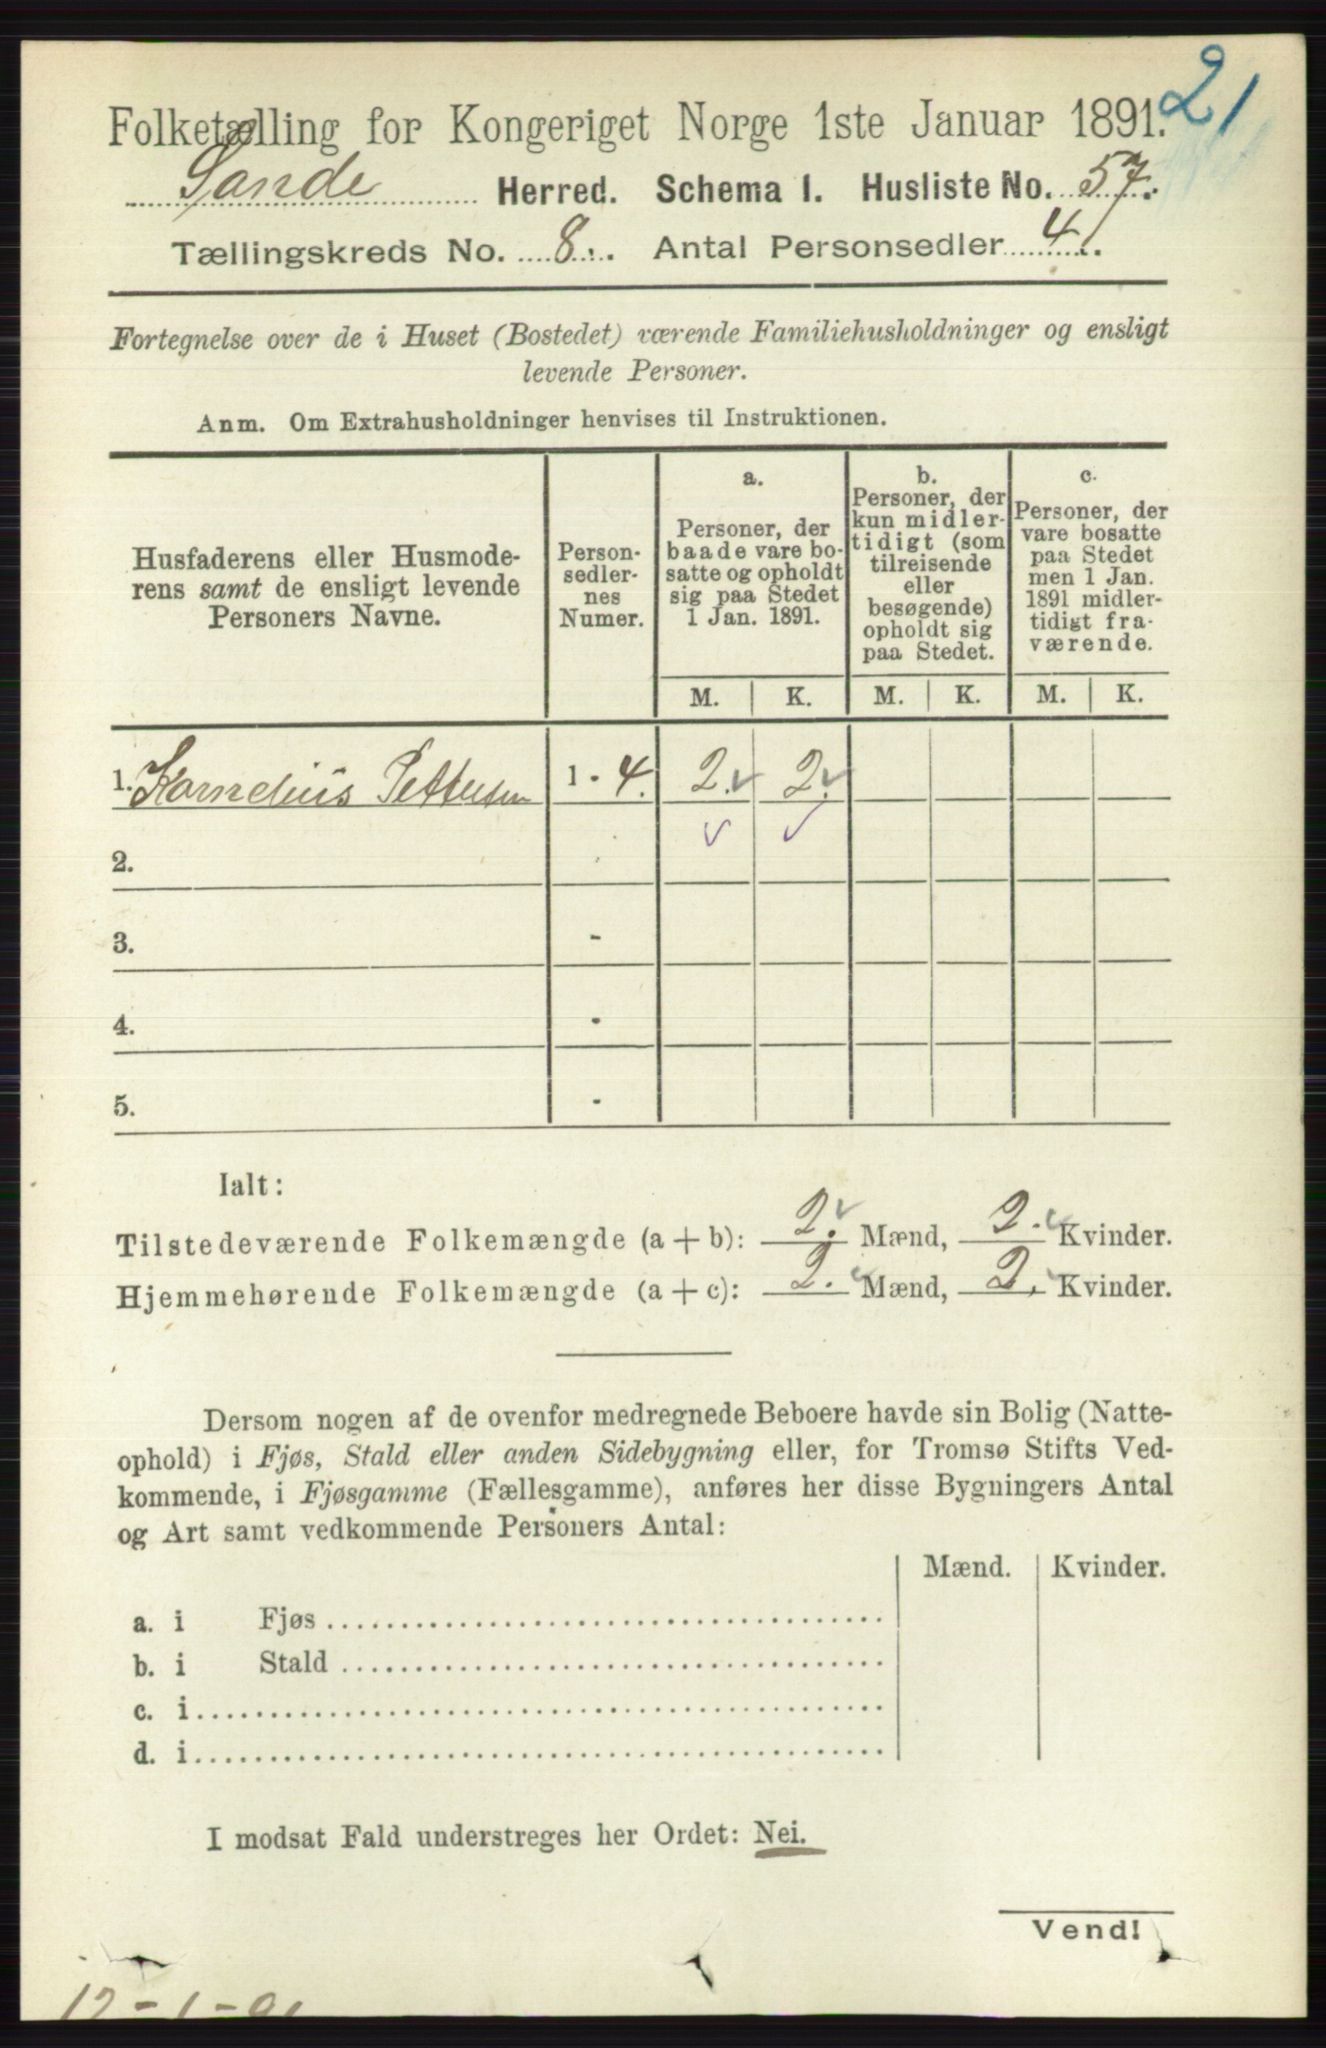 21
Folketælling for Kongeriget Norge 1ste Januar 1891.
Sande Herred. Schema 1. Husliste No. 57.
Tællingskreds No. 8. Antal Personsedler 4.
Fortegnelse over de i Huset (Bostedet) værende Familiehusholdninger og ensligt
levende Personer.
Anm. Om Extrahusholdninger henvises til Instruktionen.
Husfaderens eller Husmode-
rens samt de ensligt levende
Personers Navne.
Person-
sedler-
nes
Numer.
a.
Personer, der
baade vare bo-
satte og opholdt
sig paa Stedet
1 Jan. 1891.
b.
Personer, der
kun midler-
tidigt (som
tilreisende
eller
besøgende)
opholdt sig
paa Stedet.
c.
Personer, der
vare bosatte
paa Stedet
men 1 Jan.
1891 midler-
tidigt fra-
værende.
M. K. M. K. M. K.
1. Kornelius Pettersen 1 - 4. 2. 2.
2.
3. -
4. -
5. -
Ialt:
Tilstedeværende Folkemængde (a + b): 2. Mænd, 2. Kvinder.
Hjemmehørende Folkemængde (a + c): 2. Mænd, 2. Kvinder.
Dersom nogen af de ovenfor medregnede Beboere havde sin Bolig (Natte-
ophold) i Fjøs, Stald eller anden Sidebygning eller, for Tromsø Stifts Ved-
kommende, i Fjøsgamme (Fællesgamme), anføres her disse Bygningers Antal
og Art samt vedkommende Personers Antal:
Mænd. Kvinder.
a. i Fjøs
b. i Stald
c. i
d. i
I modsat Fald understreges her Ordet: Nei.
Vend!
12-1-91